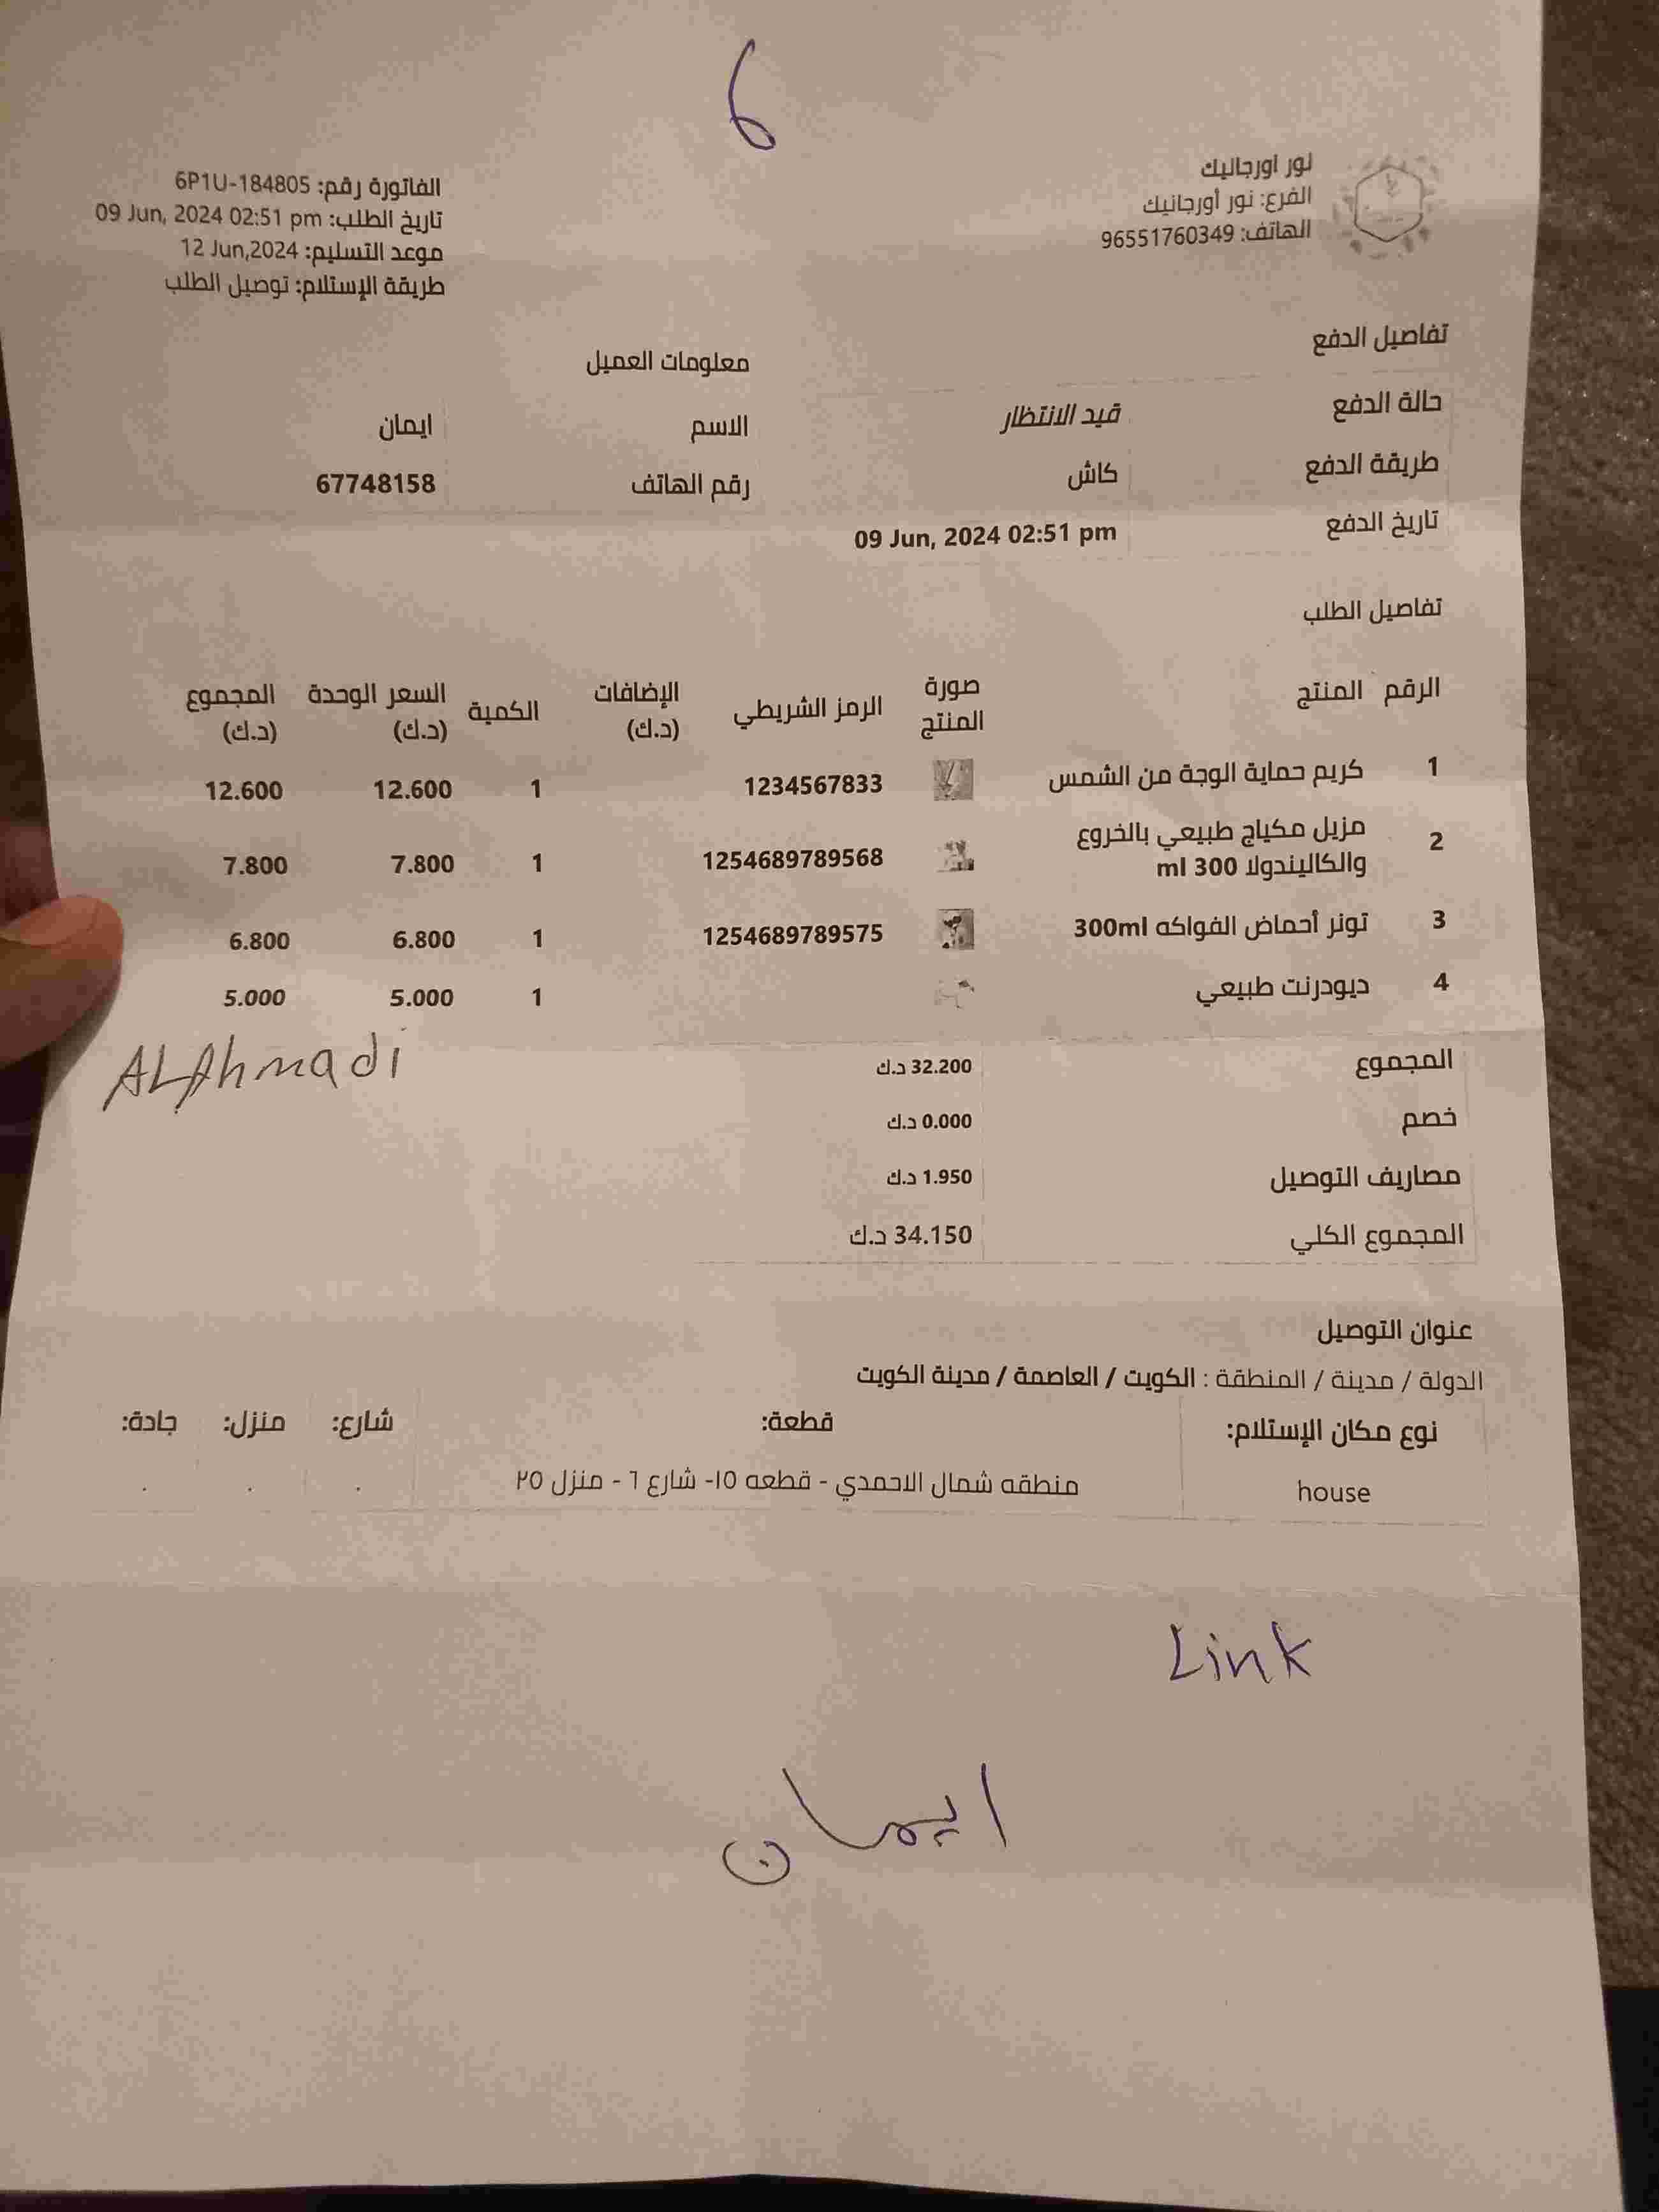 6
نور اورجانيك
الفرع: نور أورجانيك
الهاتف: 96551760349
الفاتورة رقم: 6P1U-184805
تاريخ الطلب: 09 Jun, 2024 02:51 pm
موعد التسليم: 12 Jun,2024
طريقة الإستلام: توصيل الطلب
تفاصيل الدفع
حالة الدفع قيد الانتظار
طريقة الدفع كاش
تاريخ الدفع 09 Jun, 2024 02:51 pm
معلومات العميل
الاسم ايمان
رقم الهاتف 67748158
تفاصيل الطلب
الرقم المنتج صورة المنتج الرمز الشريطي الإضافات (د.ك) الكمية السعر الوحدة (د.ك) المجموع (د.ك)
1 كريم حماية الوجة من الشمس 1234567833 1 12.600 12.600
2 مزيل مكياج طبيعي بالخروع والكاليندولا 300 ml 1254689789568 1 7.800 7.800
3 تونر أحماض الفواكه 300ml 1254689789575 1 6.800 6.800
4 ديودرنت طبيعي 1 5.000 5.000
ALAhmadi
المجموع 32.200 د.ك
خصم 0.000 د.ك
مصاريف التوصيل 1.950 د.ك
المجموع الكلي 34.150 د.ك
عنوان التوصيل
الدولة / مدينة / المنطقة : الكويت / العاصمة / مدينة الكويت
نوع مكان الإستلام: قطعة: شارع: منزل: جادة:
house منطقه شمال الاحمدي - قطعه ١٥- شارع ٦ - منزل ٢٥ . . .
Link
ايمان